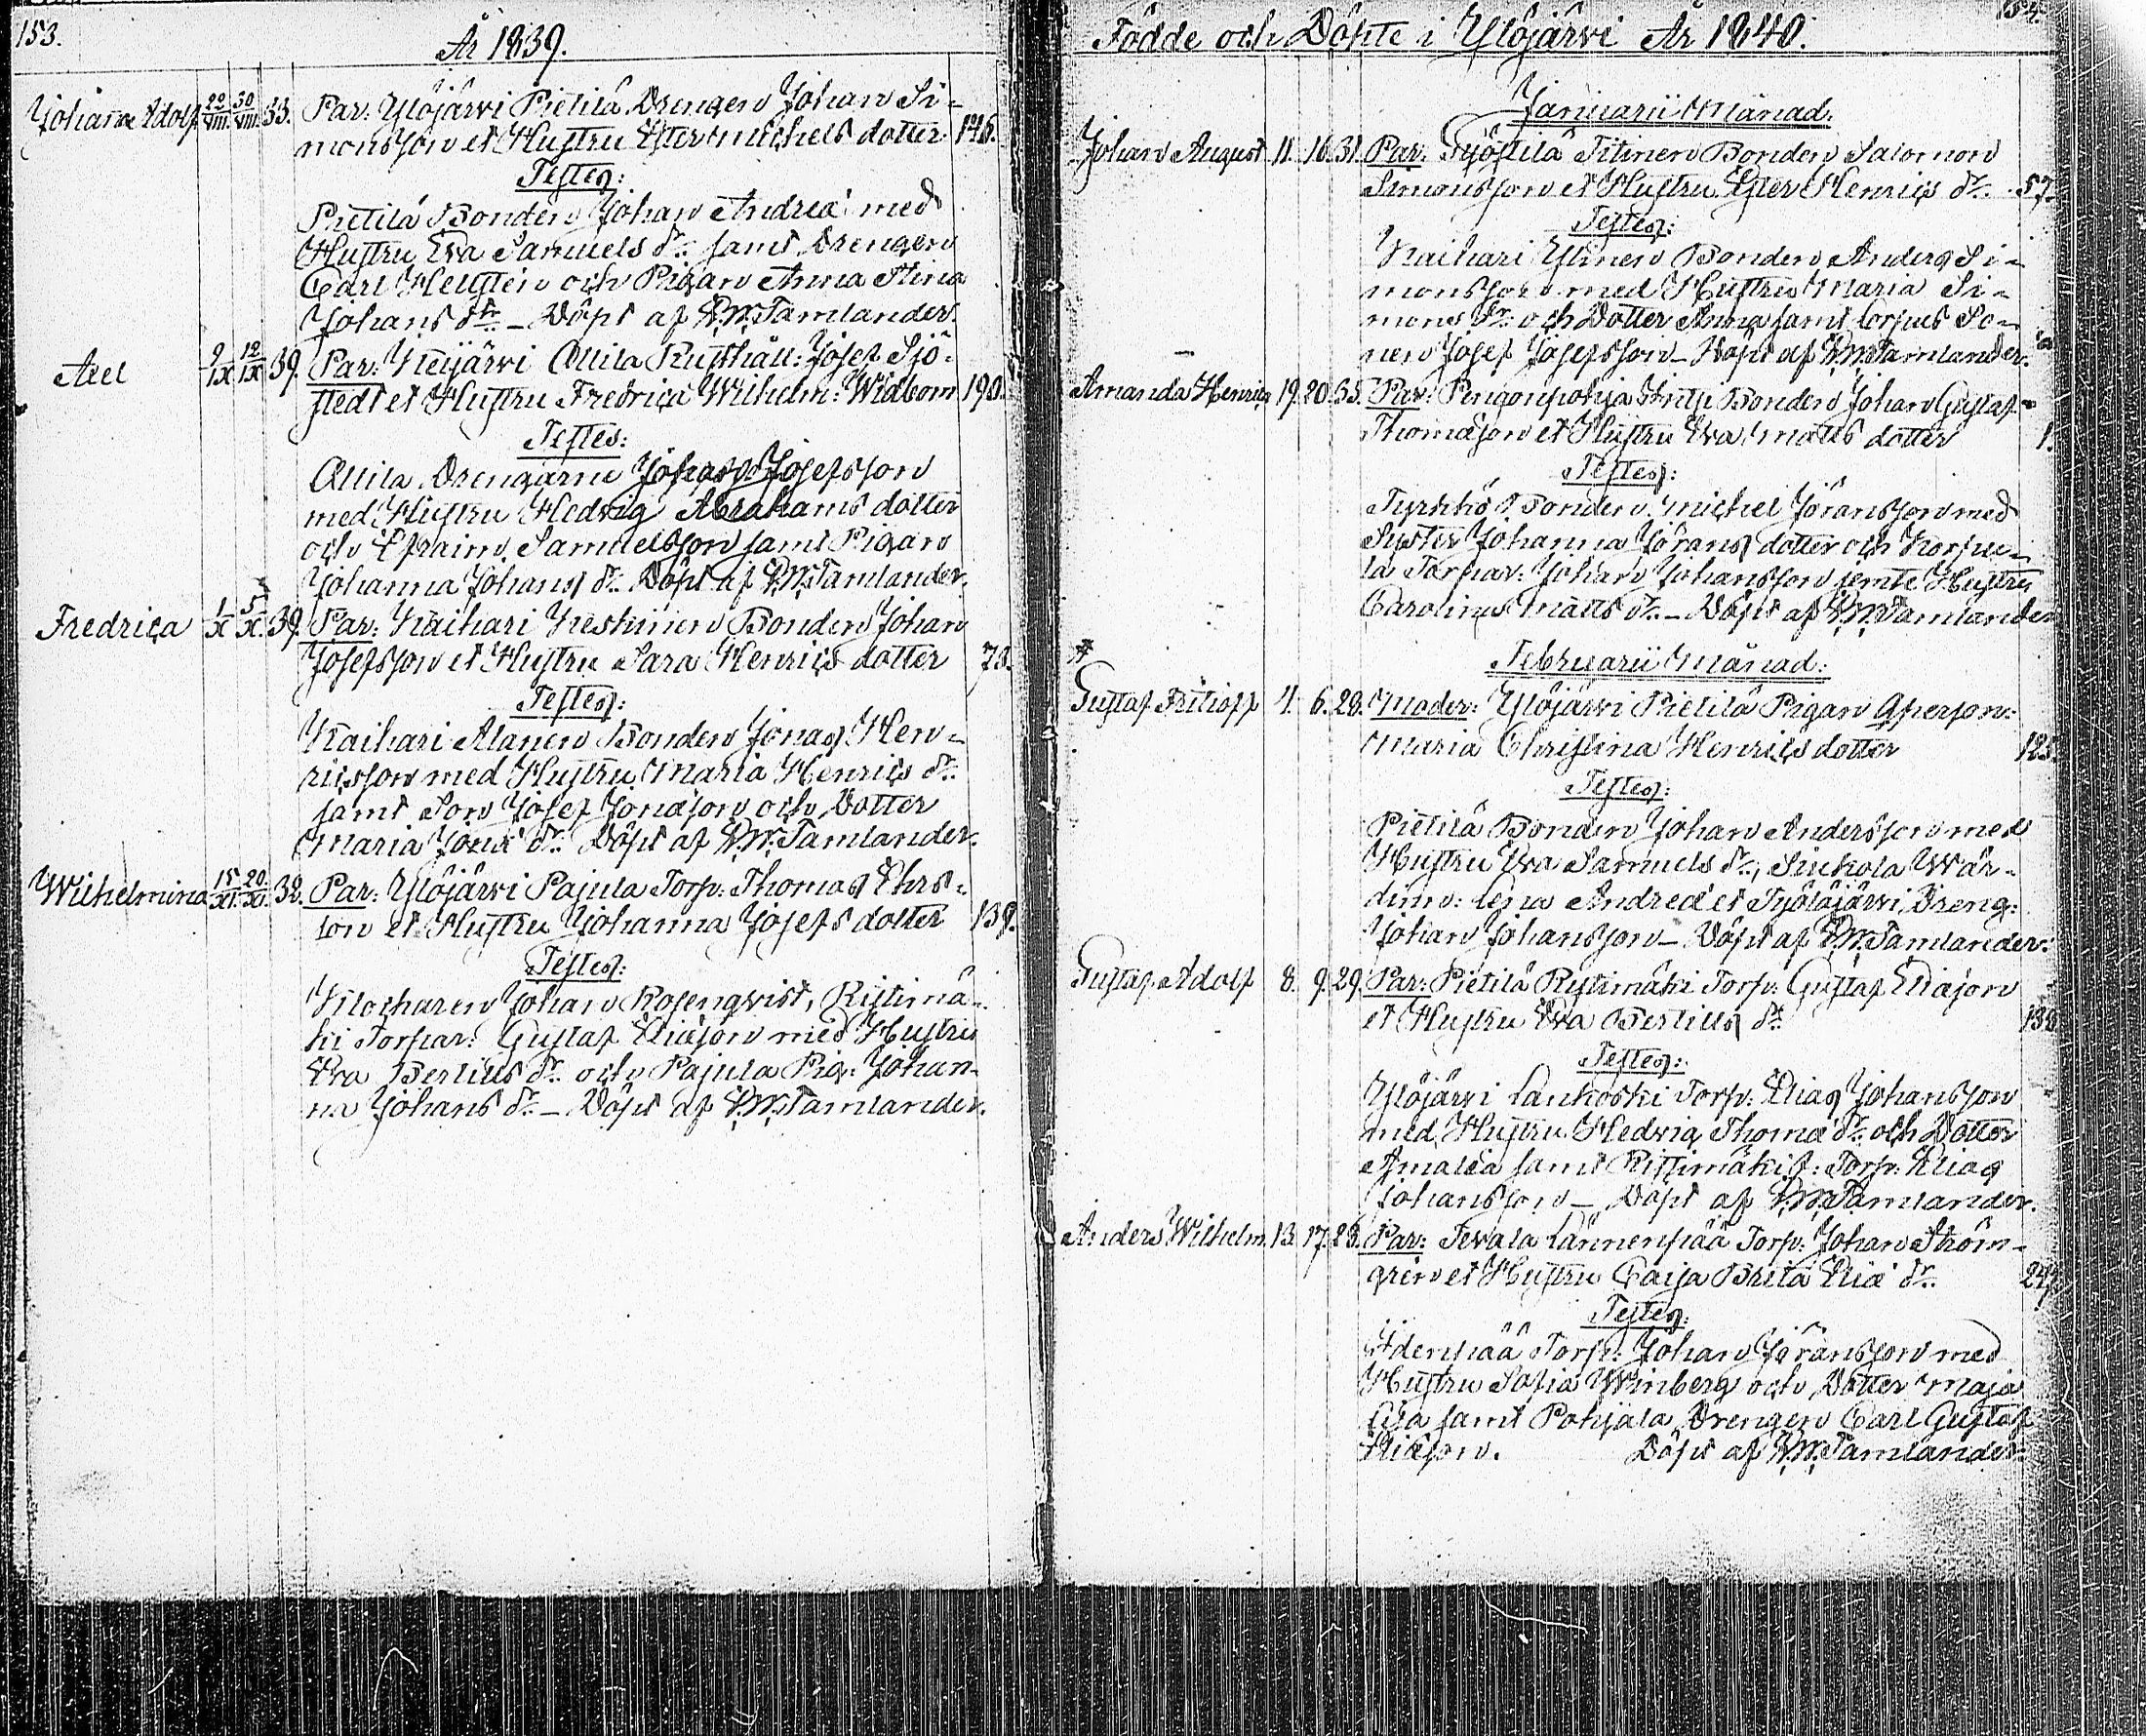 153.
År 1839.
Johan Adolf 22/VIII. 30/VIII. 33. Par: Ylöjärvi Pietilä Drengen Johan Si-
monsson et Hustru Ester Michels dotter 146.
Testes:
Pietilä Bonden Johan Andreæ med
Hustru Eva Samuels dr. samt Drengen
Carl Hellsten och Pigan Anna Stina
Johans dr. _ Döpt af P.W. Tamlander.
9/IX 12/IX 39. Par: Keijärvi Ollila Rusthåll: Josef Sjö-
stedt et Hustru Fredrica Wilhelm: Widbom 190.
Testes:
Ollila Drengarne Johan Josefsson
med Hustru Hedvig Abrahams dotter
och Efraim Samuelsson samt Pigan
Johanna Johans dr. Döpt af P.W. Tamlander.
Fredrica 1/X 5/X. 39. Par: Kaihari Keskinen Bonden Johan
Josefsson et Hustru Sara Henrics dotter 73.
Testes:
Kaihari Alanen Bonden Jonas Hen-
ricsson med Hustru Maria Henrics dr.
samt Son Josef Jonæson och Dotter
Maria Jonæ dr. Döpt af P.W. Tamlander.
Wilhelmina 15/XI. 20/XI. 32. Par: Ylöjärvi Pajula Torp: Thomas Ehrs-
tön et Hustru Johanna Josefs dotter 139.
Testes:
Klockaren Johan Rosenqvist, Ristimä-
ki Torpar: Gustaf Eliæson med Hustru
Eva Bertills dr. och Pajula Pig: Johan-
na Johans dr. _ Döpt af P.W. Tamlander.
154.
Födde och Döpte i Ylöjärvi År 1840.
Januarii Månad.
Johan August 11. 16. 31. Par: Työstilä Titinen Bonden Salomon
Simonsson et Hustru Ester Henrics dr. 57.
Testes:
Kaihari Ylinen Bonden Anders Si-
monsson med Hustru Maria Si-
mons dr. och Dotter Anna samt Corpus So-
nen Josef Josefsson _ Döpt af P.W. Tamlander.
Amanda Henrica 19. 20. 35. Par: Pengonpohja Bonden Johan Gustaf
Thomæson et Hustru Eva Matts dotter 1.
Testes:
Tyrkkö Bonden Michel Jöransson med
Syster Johanna Jörans dotter och Korpu-
la Torpar: Johan Johansson jemte Hustru
Carolina Matts dr. _ Döpt af P.W. Tamlander
Februarii Månad:
Gustaf Fritioff 4. 6. 28. Moder: Ylöjärvi Pietilä Pigan
Maria Christina Henrics dotter 125.
Testes:
Pietilä Bonden Johan Andersson med
Hustru Eva Samuels dr., Siukola Wär-
dinn: Lena Andreæ et Työläjärvi Dreng:
Johan Johansson _ Döpt af P.W. Tamlander.
Gustaf Adolf 8. 9. 29. Par: Pietilä Ristimäki Torp: Gustaf Eliæson
et Hustru Eva Bertills dr. 138
Testes:
Ylöjärvi Lankoski Torp: Elias Johansson
med Hustru Hedvig Thomæ dr. och Dotter
Amalia samt Ristimäki f: Torp: Elias
Johansson _ Döpt af P.W. Tamlander.
Anders Wilhelm 13. 17. 23. Par: Tevala Lännenpää Torp: Johan Ström-
gren et Hustru Caisa Brita Eliæ dr.
Testes:
Torp: Johan Jöransson med
Hustru Sofia Winberg och Dotter Maja
Lisa samt Pohjala Drengen Carl Gustaf
Eliæson. Döpt af P.W. Tamlander.